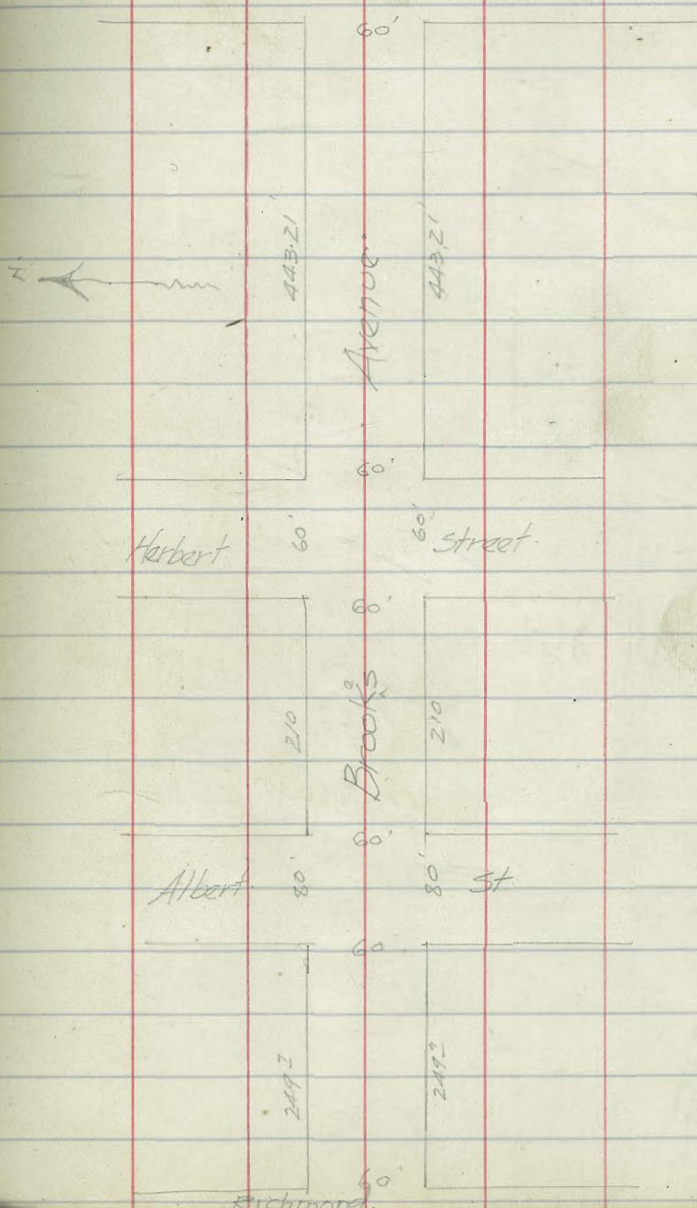 60'
443.21'
Avenue
443.21'
N
60'
Herbert
60'
60'
Street
60'
210
Brooks
210
60'
Albert
80'
80'
St
60
60'
Richmond